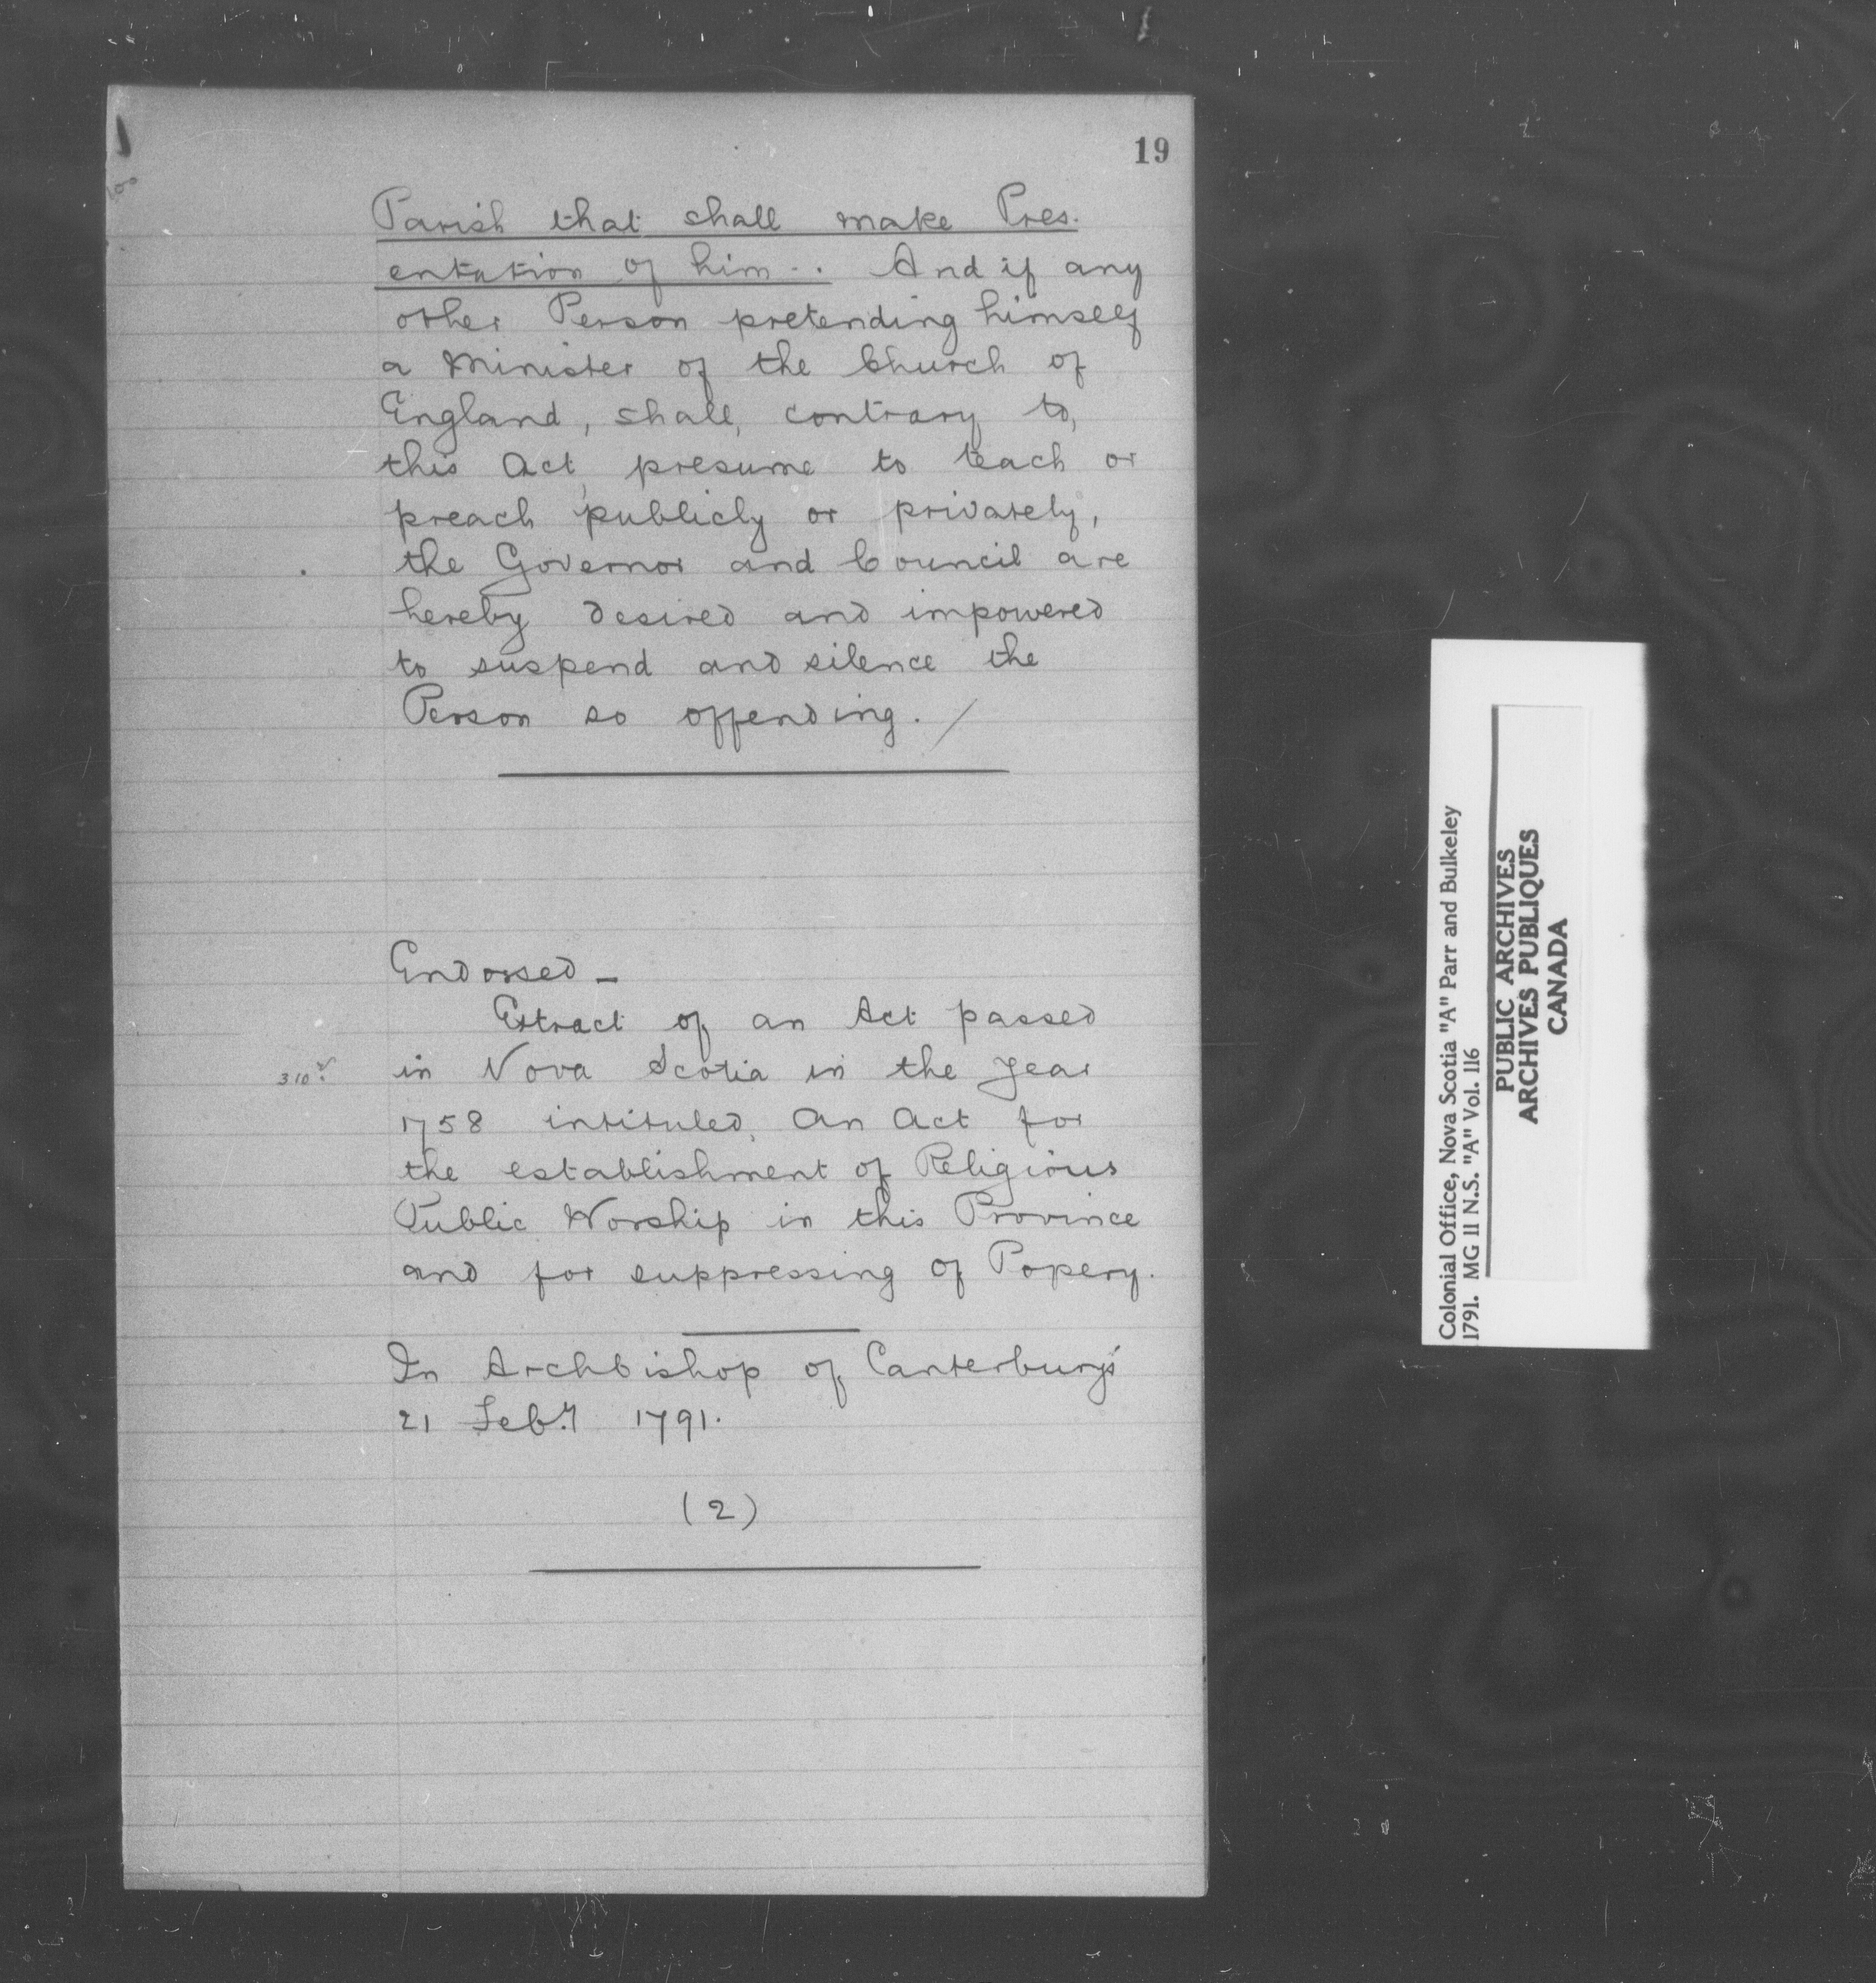 19
Parish that shall make Pres-
entation of him -. And if any
other Person pretending himself
a Minister of the Church of
England, shall, contrary to,
this Act, presume to teach or
preach publicly or privately,
the Governor and Council are
hereby desired and impowered
to suspend and silence the
Person so offending. /
Endorsed -
Extract of an Act passed
in Nova Scotia in the year
1758 intituled, An Act for
the establishment of Religious
Public Worship in this Province
and for suppressing of Popery.
In Archbishop of Canterbury's
21 Feby 1791.
(2)
310
Colonial Office, Nova Scotia "A" Parr and Bulkeley
1791. MG 11 N.S. "A" Vol. 116
PUBLIC ARCHIVES
ARCHIVES PUBLIQUES
CANADA